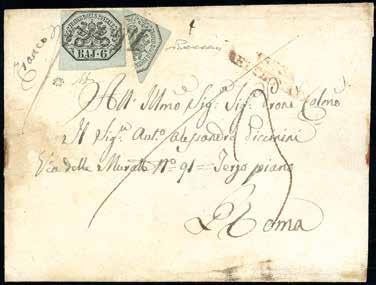 Franco
BAJ. 6
All' Illmo Sigr Sigr Prone Colmo
Il Sigr Anto Alessandro Piccinini
Via delle Muratte No 91 = Terzo piano
Roma